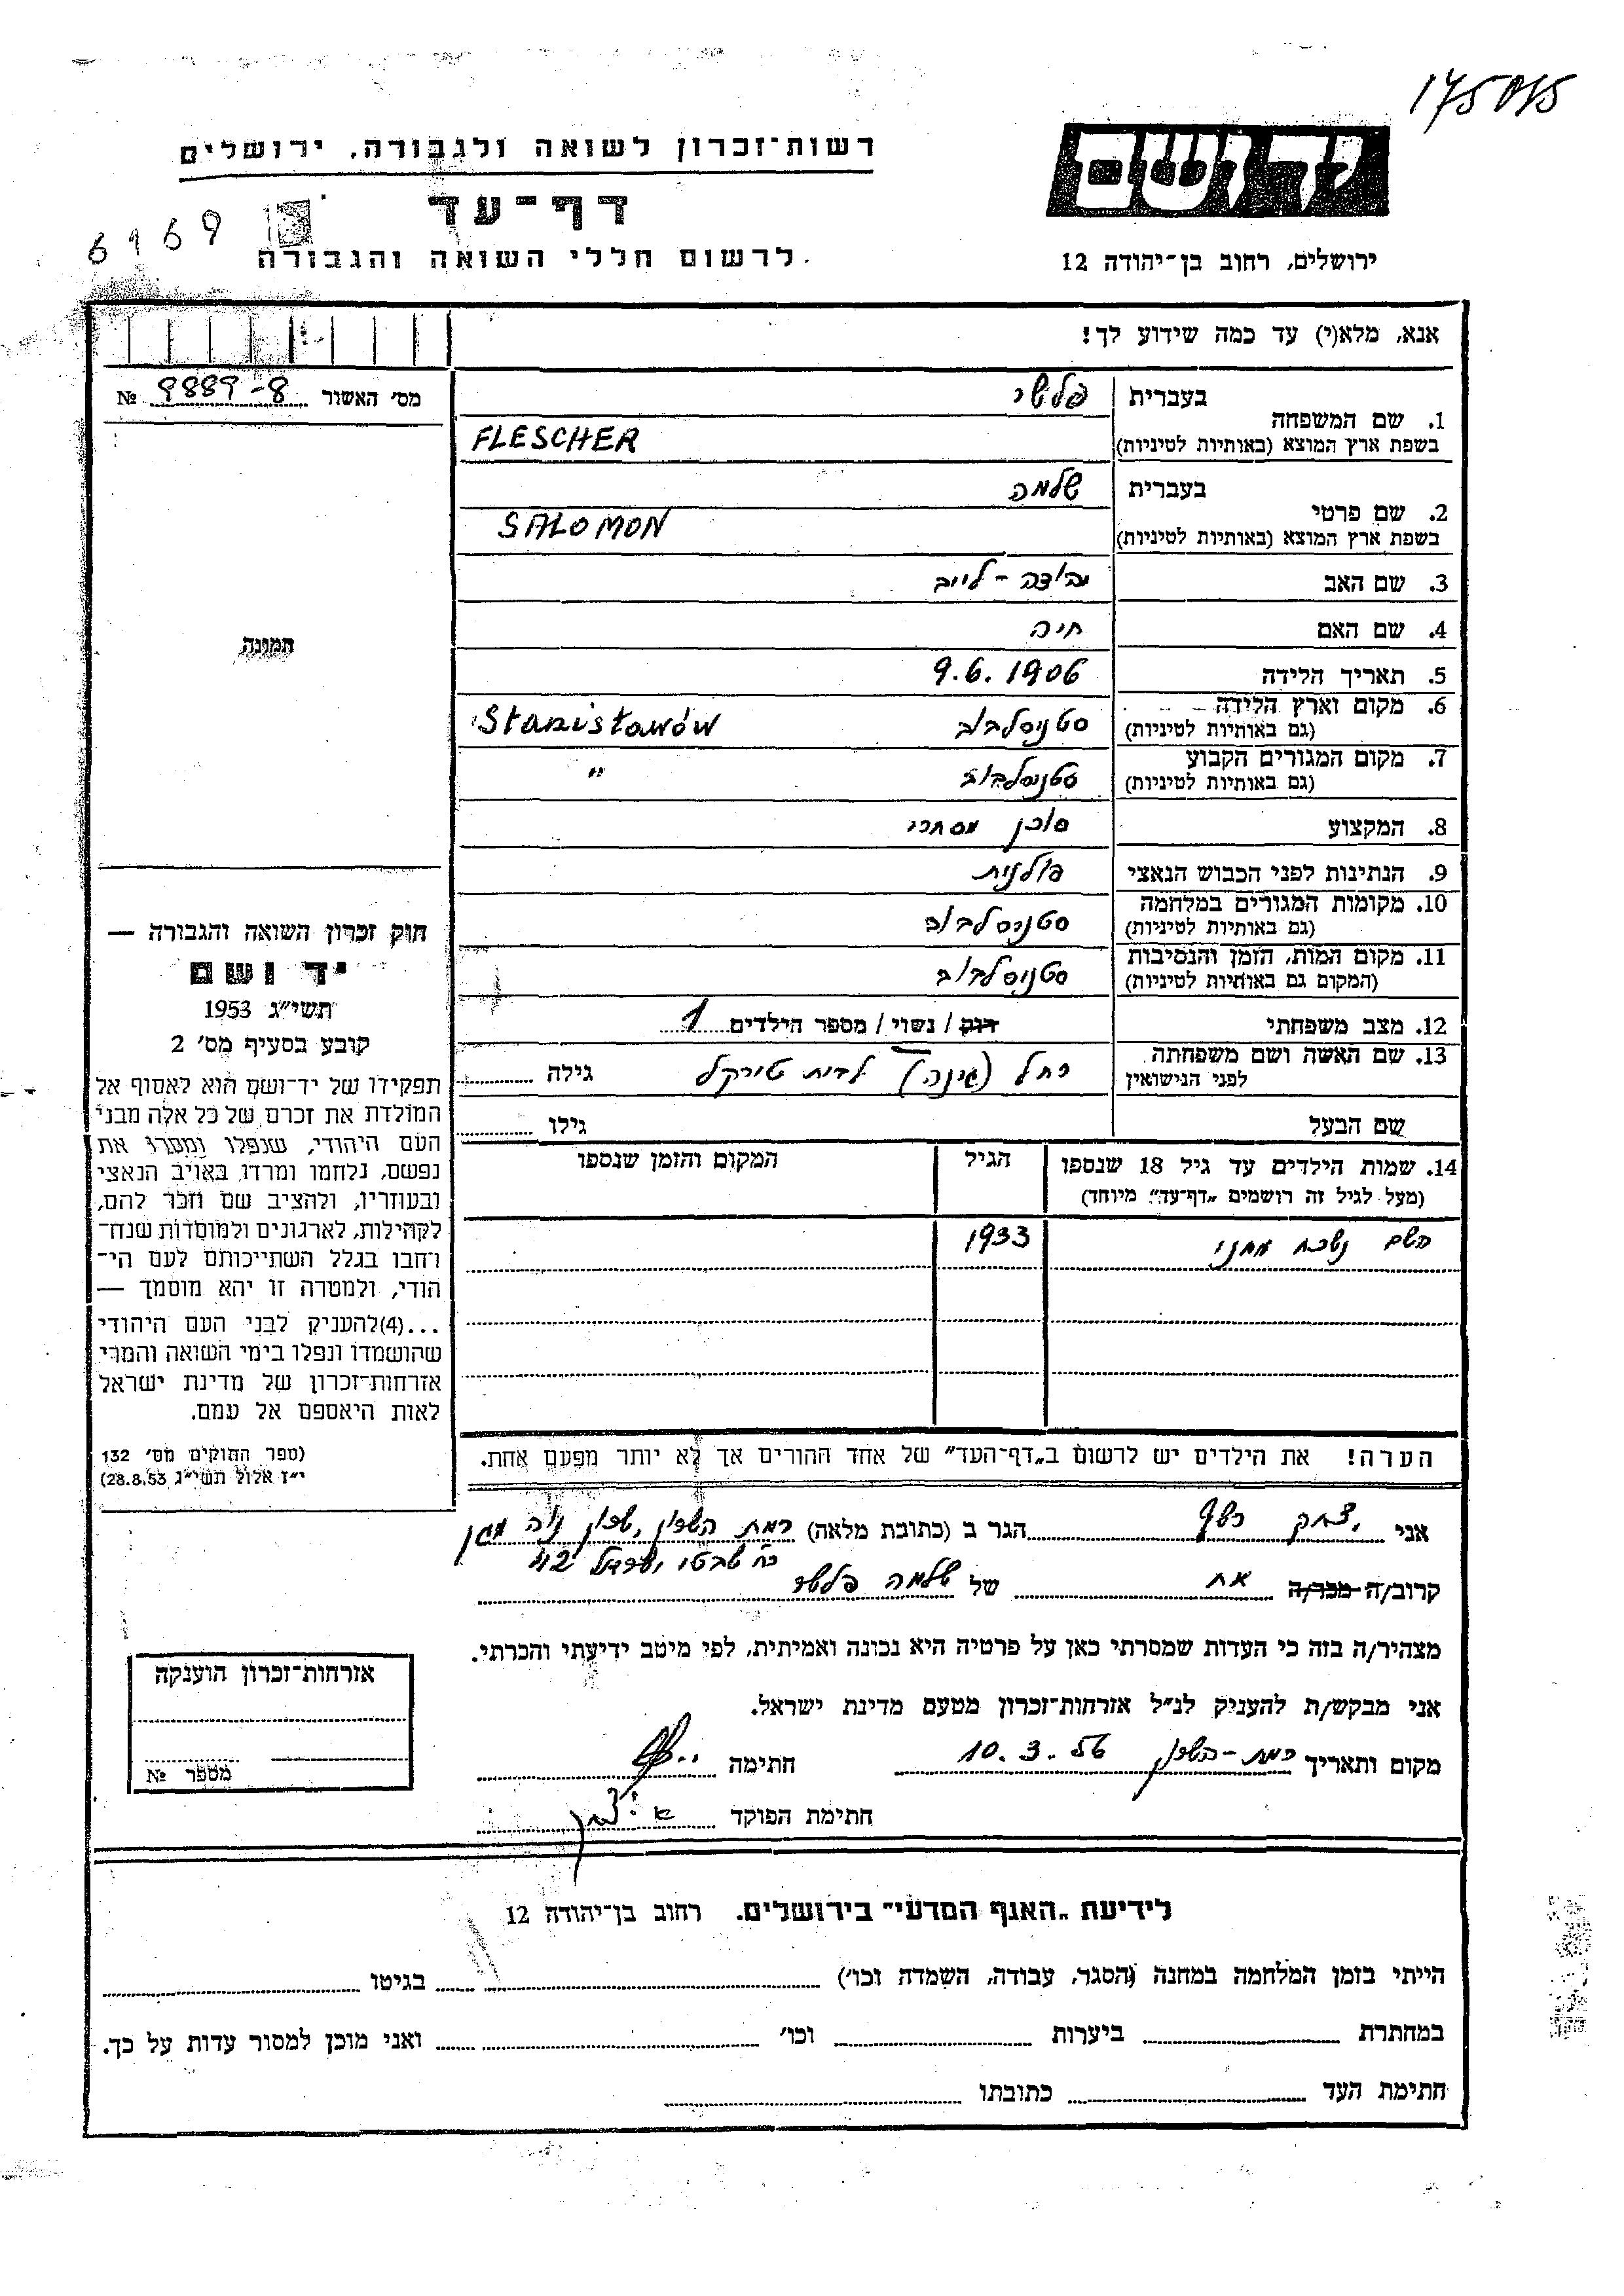 175 015
יד ושם
רשות־זכרון לשואה ולגבורה, ירושלים
דף־עד
6969
לרשום חללי השואה והגבורה
ירושלים, רחוב בן־יהודה 12
אנא, מלא(י) עד כמה שידוע לך!
מס׳ האשור 8-9889 №
1. שם המשפחה
בעברית פלשר
בשפת ארץ המוצא (באותיות לטיניות) FLESCHER
2. שם פרטי
בעברית שלמה
בשפת ארץ המוצא (באותיות לטיניות) SALOMON
3. שם האב יהודה - לייב
4. שם האם חיה
תמונה
5. תאריך הלידה 9.6.1906
6. מקום וארץ הלידה (גם באותיות לטיניות) סטניסלבוב Stanisławów
7. מקום המגורים הקבוע (גם באותיות לטיניות) סטניסלבוב "
8. המקצוע סוכן מסחרי
9. הנתינות לפני הכבוש הנאצי פולנית
10. מקומות המגורים במלחמה (גם באותיות לטיניות) סטניסלבוב
11. מקום המות, הזמן והנסיבות (המקום גם באותיות לטיניות) סטניסלבוב
12. מצב משפחתי רוק / נשוי / מספר הילדים 1
13. שם האשה ושם משפחתה לפני הנישואין רחל (גינה) לבית טורקל גילה
שם הבעל גילו
14. שמות הילדים עד גיל 18 שנספו (מעל לגיל זה רושמים „דף־עד״ מיוחד)
הגיל
המקום והזמן שנספו
השם נשכח ממני 1933
הערה! את הילדים יש לרשום ב„דף־העד״ של אחד ההורים אך לא יותר מפעם אחת.
חוק זכרון השואה והגבורה —
יד ושם
תשי״ג 1953
קובע בסעיף מס׳ 2
תפקידו של יד־ושם הוא לאסוף אל
המולדת את זכרם של כל אלה מבני
העם היהודי, שנפלו ומסרו את
נפשם, נלחמו ומרדו באויב הנאצי
ובעוזריו, ולהציב שם וזכר להם,
לקהילות, לארגונים ולמוסדות שנח־
רחבו בגלל השתייכותם לעם הי־
הודי, ולמטרה זו יהא מוסמך —
...(4)להעניק לבני העם היהודי
שהושמדו ונפלו בימי השואה והמרי
אזרחות־זכרון של מדינת ישראל
לאות היאספם אל עמם.
(ספר החוקים מס׳ 132
י״ז אלול תשי״ג 28.8.53)
אני יצחק רשף הגר ב (כתובת מלאה) רמת השרון, שכון נוה מגן
רח׳ 42
קרוב/ה מכר/ה אח של שלמה פלשר
מצהיר/ה בזה כי העדות שמסרתי כאן על פרטיה היא נכונה ואמיתית, לפי מיטב ידיעתי והכרתי.
אני מבקש/ת להעניק לנ״ל אזרחות־זכרון מטעם מדינת ישראל.
מקום ותאריך רמת-השרון 10.3.56 חתימה
חתימת הפוקד
אזרחות־זכרון הוענקה
מספר №
לידיעת „האגף המדעי״ בירושלים. רחוב בן־יהודה 12
הייתי בזמן המלחמה במחנה (הסגר, עבודה, השמדה וכו׳) בגיטו
במחתרת ביערות וכו׳ ואני מוכן למסור עדות על כך.
חתימת העד כתובתו